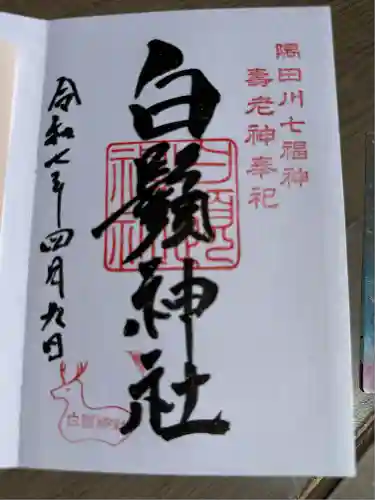 隅田川七福神
壽老神奉祀
白鬚神社
令和七年四月九日
白鬚神社